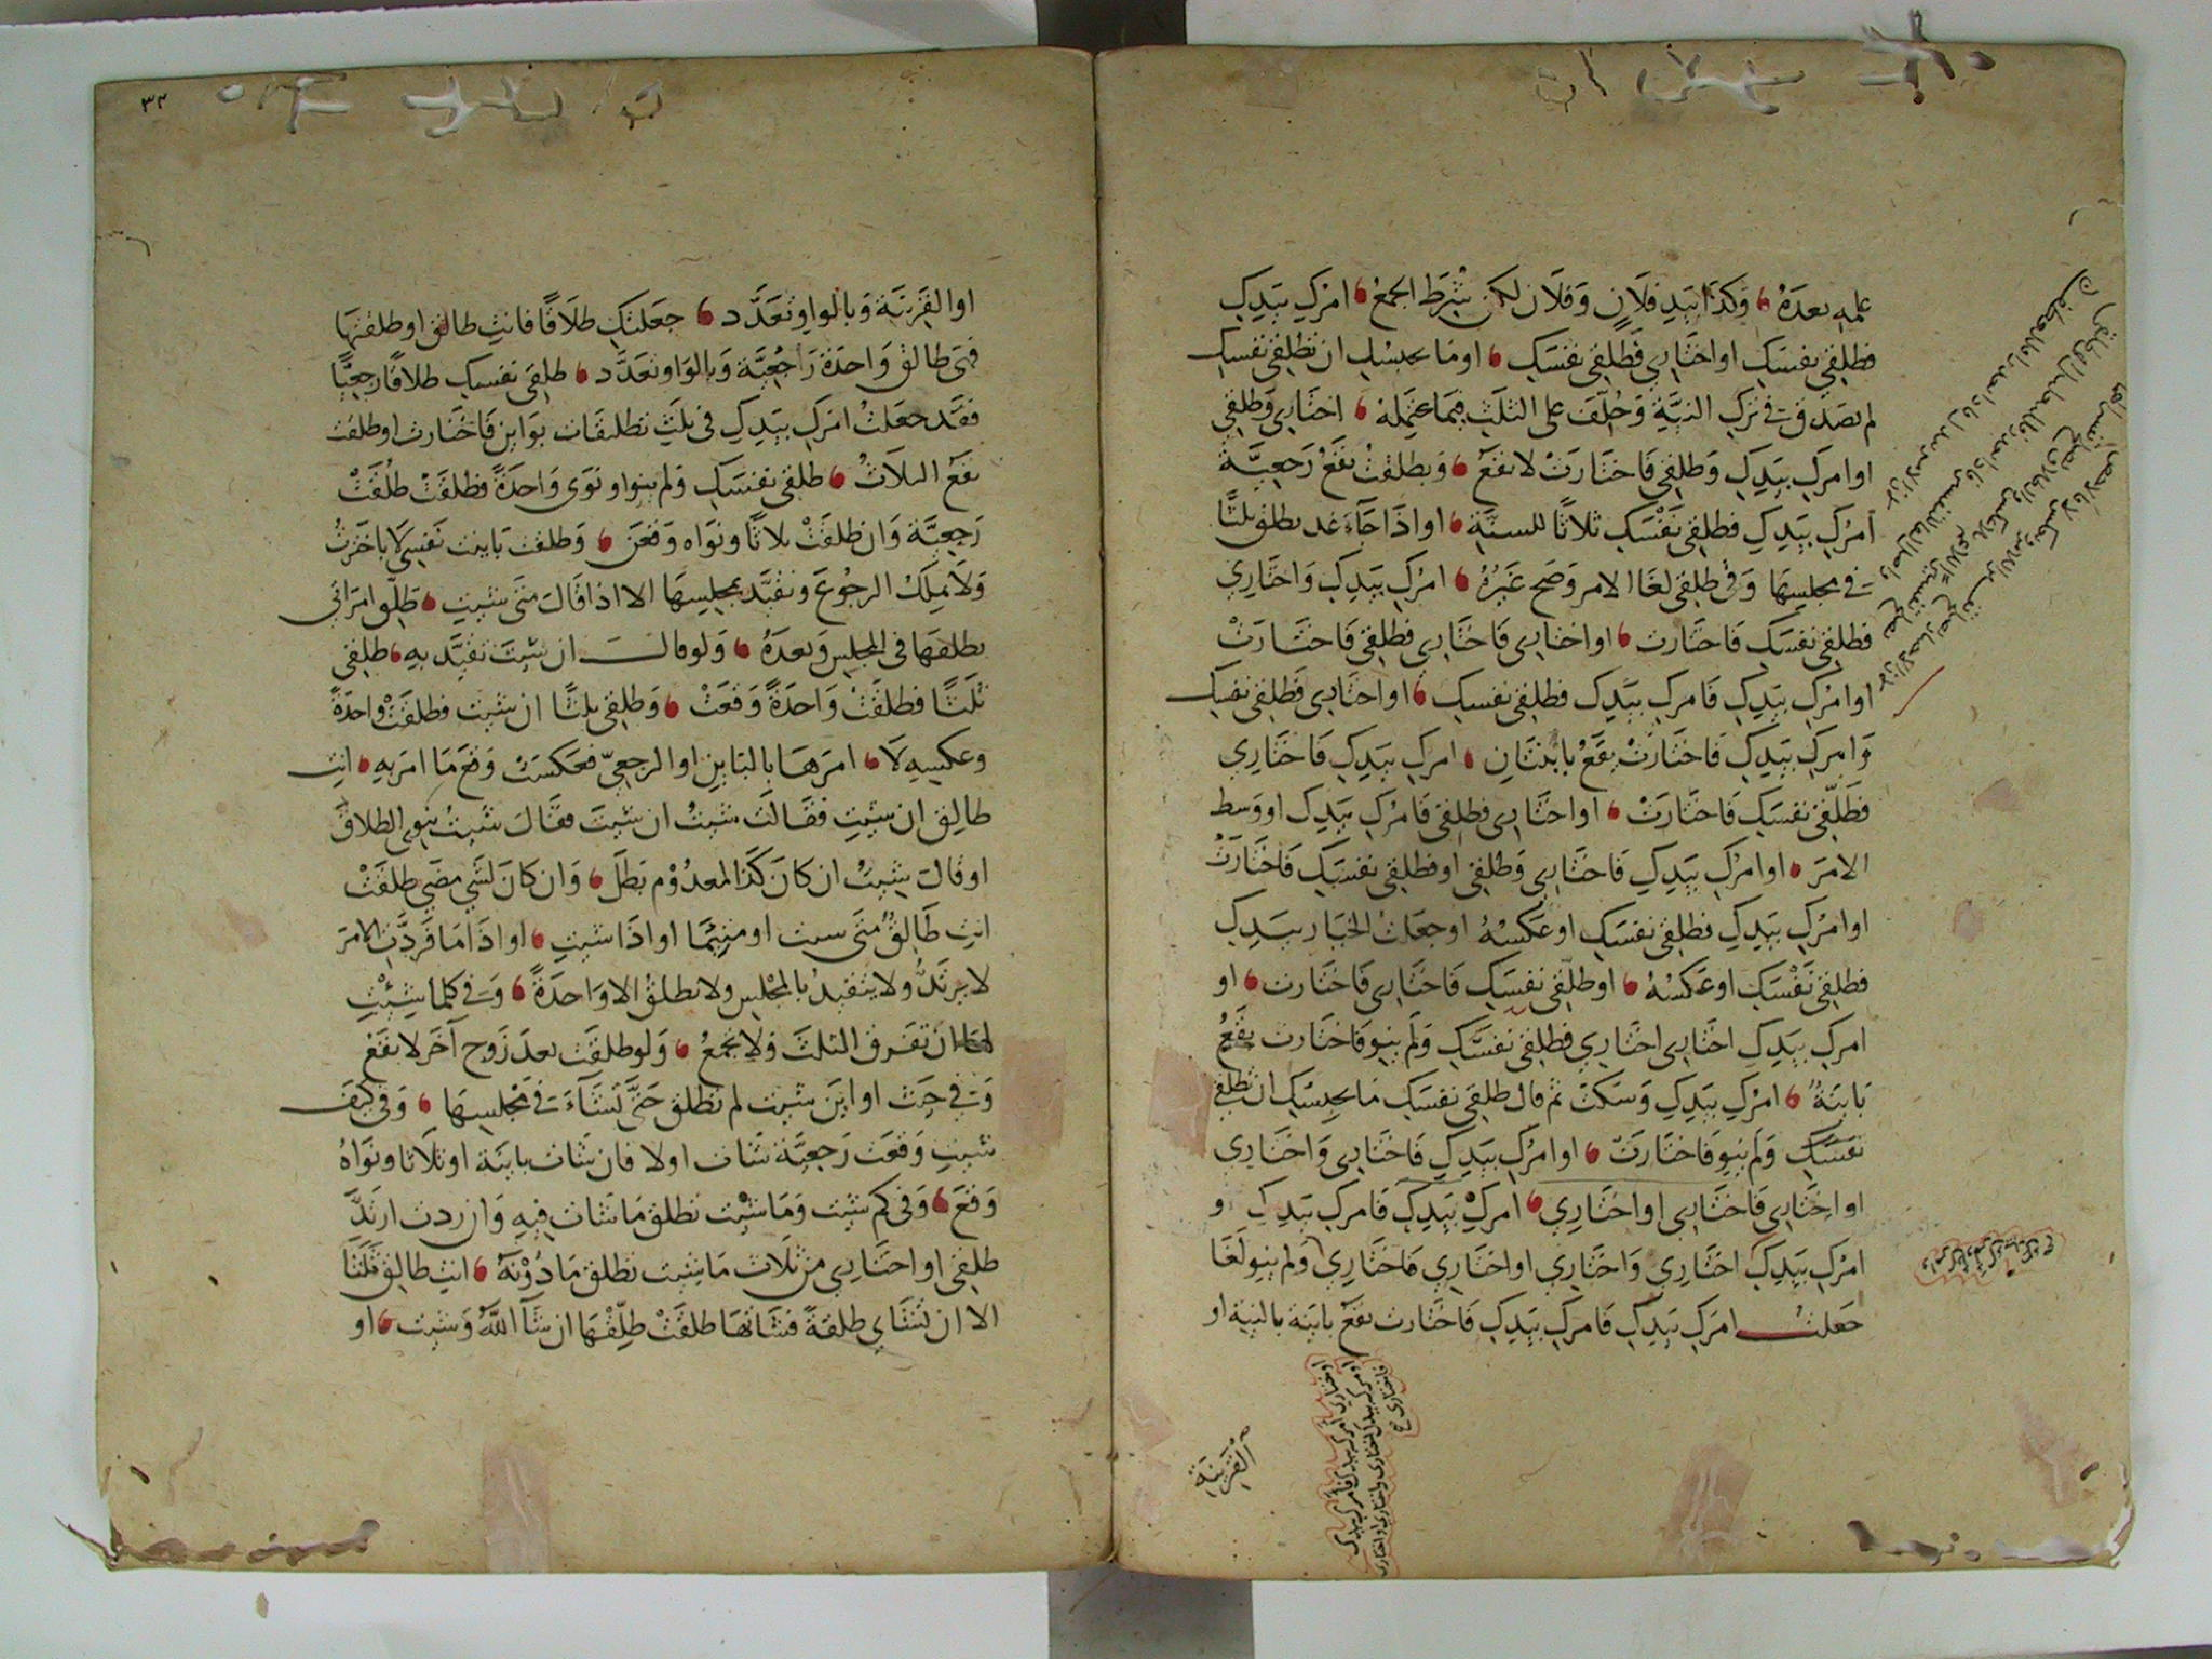 علمه بعده وكذا بيد فلان وفلان لكن شرط الجمع امرك بيدك
فطلقي نفسك او اختاري فطلقي نفسك او ما يحبسك ان تطلقي نفسك
لم يصدق في ترك النية وحلف على الثلث فيما يحتمله اختاري وطلقي
او امرك بيدك وطلقي فاختارت لا تقع وبطلقت تقع رجعية
امرك بيدك فطلقي نفسك ثلاثا للسنة او اذا جاء غد تطلق ثلثا
في مجلسها وفي طلقي لغا الامر وصح غيره امرك بيدك واختاري
فطلقي نفسك فاختارت او اختاري فاختاري فطلقي فاختارت
او امرك بيدك فامرك بيدك فطلقي نفسك او اختاري فطلقي نفسك
وامرك بيدك فاختارت يقع بائنتان امرك بيدك فاختاري
فطلقي نفسك فاختارت او اختاري فطلقي فامرك بيدك او وسط
الامر او امرك بيدك فاختاري وطلقي او فطلقي نفسك فاختارت
او امرك بيدك فطلقي نفسك او عكسه او جعلت الخيار بيدك
فطلقي نفسك او عكسه او طلقي نفسك فاختاري فاختارت او
امرك بيدك اختاري اختاري فطلقي نفسك ولم ينو فاختارت يقع
باينة امرك بيدك وسكت ثم قال طلقي نفسك ما يحبسك ان تطلقي
نفسك ولم ينو فاختارت او امرك بيدك فاختاري واختاري
او اختاري فاختاري او اختاري امرك بيدك فامرك بيدك و
امرك بيدك اختاري واختاري او اختاري فاختاري ولم ينو لغا
جعلت امرك بيدك فامرك بيدك فاختارت تقع باينة بالنية او
القرينة
او القرينة وبالواو تعدد جعلتك طلاقا فانت طالق او طلقتها
فهي طالق واحدة راجعية وبالواو تعدد طلقي نفسك طلاقا رجعيا
فقد جعلت امرك بيدك في ثلث تطليقات بواين فاختارت او طلقت
تقع الثلاث طلقي نفسك ولم ينو او نوى واحدة فطلقت طلقت
رجعية وان طلقت ثلاثا ونواه وقعن وطلقت باينت نفسي لا باخترت
ولا يملك الرجوع وتقيد بمجلسها الا اذا قالت متى شيت طلق امراتي
يطلقها في المجلس وبعده ولو قال ان شيت تقيد به طلقي
ثلثا فطلقت واحدة وقعت وطلقي ثلثا ان شيت فطلقت واحدة
وعكسه لا امرها بالباين او الرجعي فعكست وقع ما امر به انت
طالق ان شيت فقالت شيت ان شيت فقال شيت ينوي الطلاق
او قالت شيت ان كان كذا لمعدوم بطل وان كان لشي مضى طلقت
انت طالق متى شيت او متيما او اذا شيت او اذا ما فردت الامر
لا يرتد ولا يتقيد بالمجلس ولا تطلق الا واحدة وفي كلما شيت
لها ان تفرق الثلث ولا تجمع ولو طلقت بعد زوج آخر لا يقع
وفي حيث او اين شيت لم تطلق حتى تشاء في مجلسها وفي كيف
شيت وقعت رجعية شات او لا فان شات باينة او ثلاثا ونواه
وقع وفي كم شيت وما شيت تطلق ما شات فيه وان ردت ارتد
طلقي او اختاري من ثلاث ما شيت تطلق ما دونه انت طالق ثلثا
الا ان تشاي طلقة فشاتها طلقت طلقها ان شا الله وشيت او
٣٢